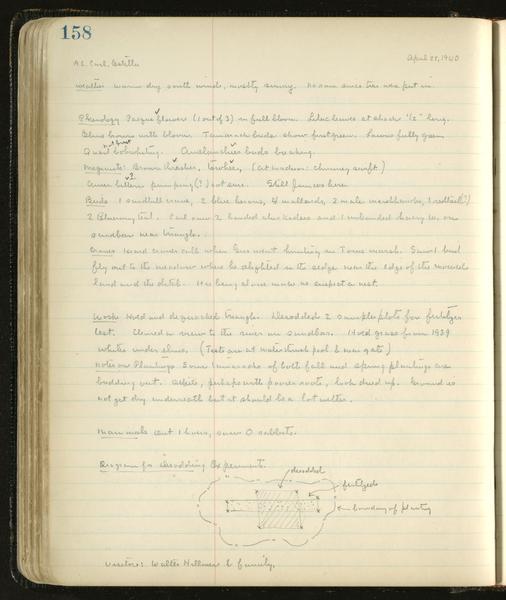 158
April 28, 1940
AL, Carl, Estella
Weather warm dry south winds, mostly sunny. No rain since trees was put in.
Phenology Pasque flower (1 out of 3) in full bloom. Lilac leaves at shack "½" long.
Elms brown with bloom. Tamarack buds show first green. Lawns fully green
Quail bobwhiting. Amelanchier buds breaking.
Migrants: Brown thrasher, towhee, (At Madison: chimney swift.)
Amer. bittern pumping(?) not sure. Still Juncos here
Birds 1 sandhill crane, 2 blue herons, 4 mallards, 2 male marsh hawks, 1 redtail(?)
2 Bluewing teal. Carl saw 2 banded chickadees and 1 unbanded hairy w. on
sandbar near triangle.
Cranes heard crane call when Gus went hunting in marsh. Saw 1 bird
fly out to the meadow where he alighted in the sedge near the edge of the mowed
land and the ditch. His being alone makes me suspect a nest.
Work Hoed and dequacked triangle. Desodded 2 sample plots for fertilizer
test. Cleared a view to the river on sandbar. Hoed grass from 1939
whites under elms. (Tests are at & near gate)
Notes on Plantings Some tamaracks of both fall and spring plantings are
budding out. Others, perhaps with poorer roots, look dried up. Ground is
not yet dry underneath but it should be a lot wetter.
Mammals Out 1 hour, saw 0 rabbits.
Diagram for Desodding Experiment.
desodded
fertilized
boundary of planting
Visitors: Walter & family.